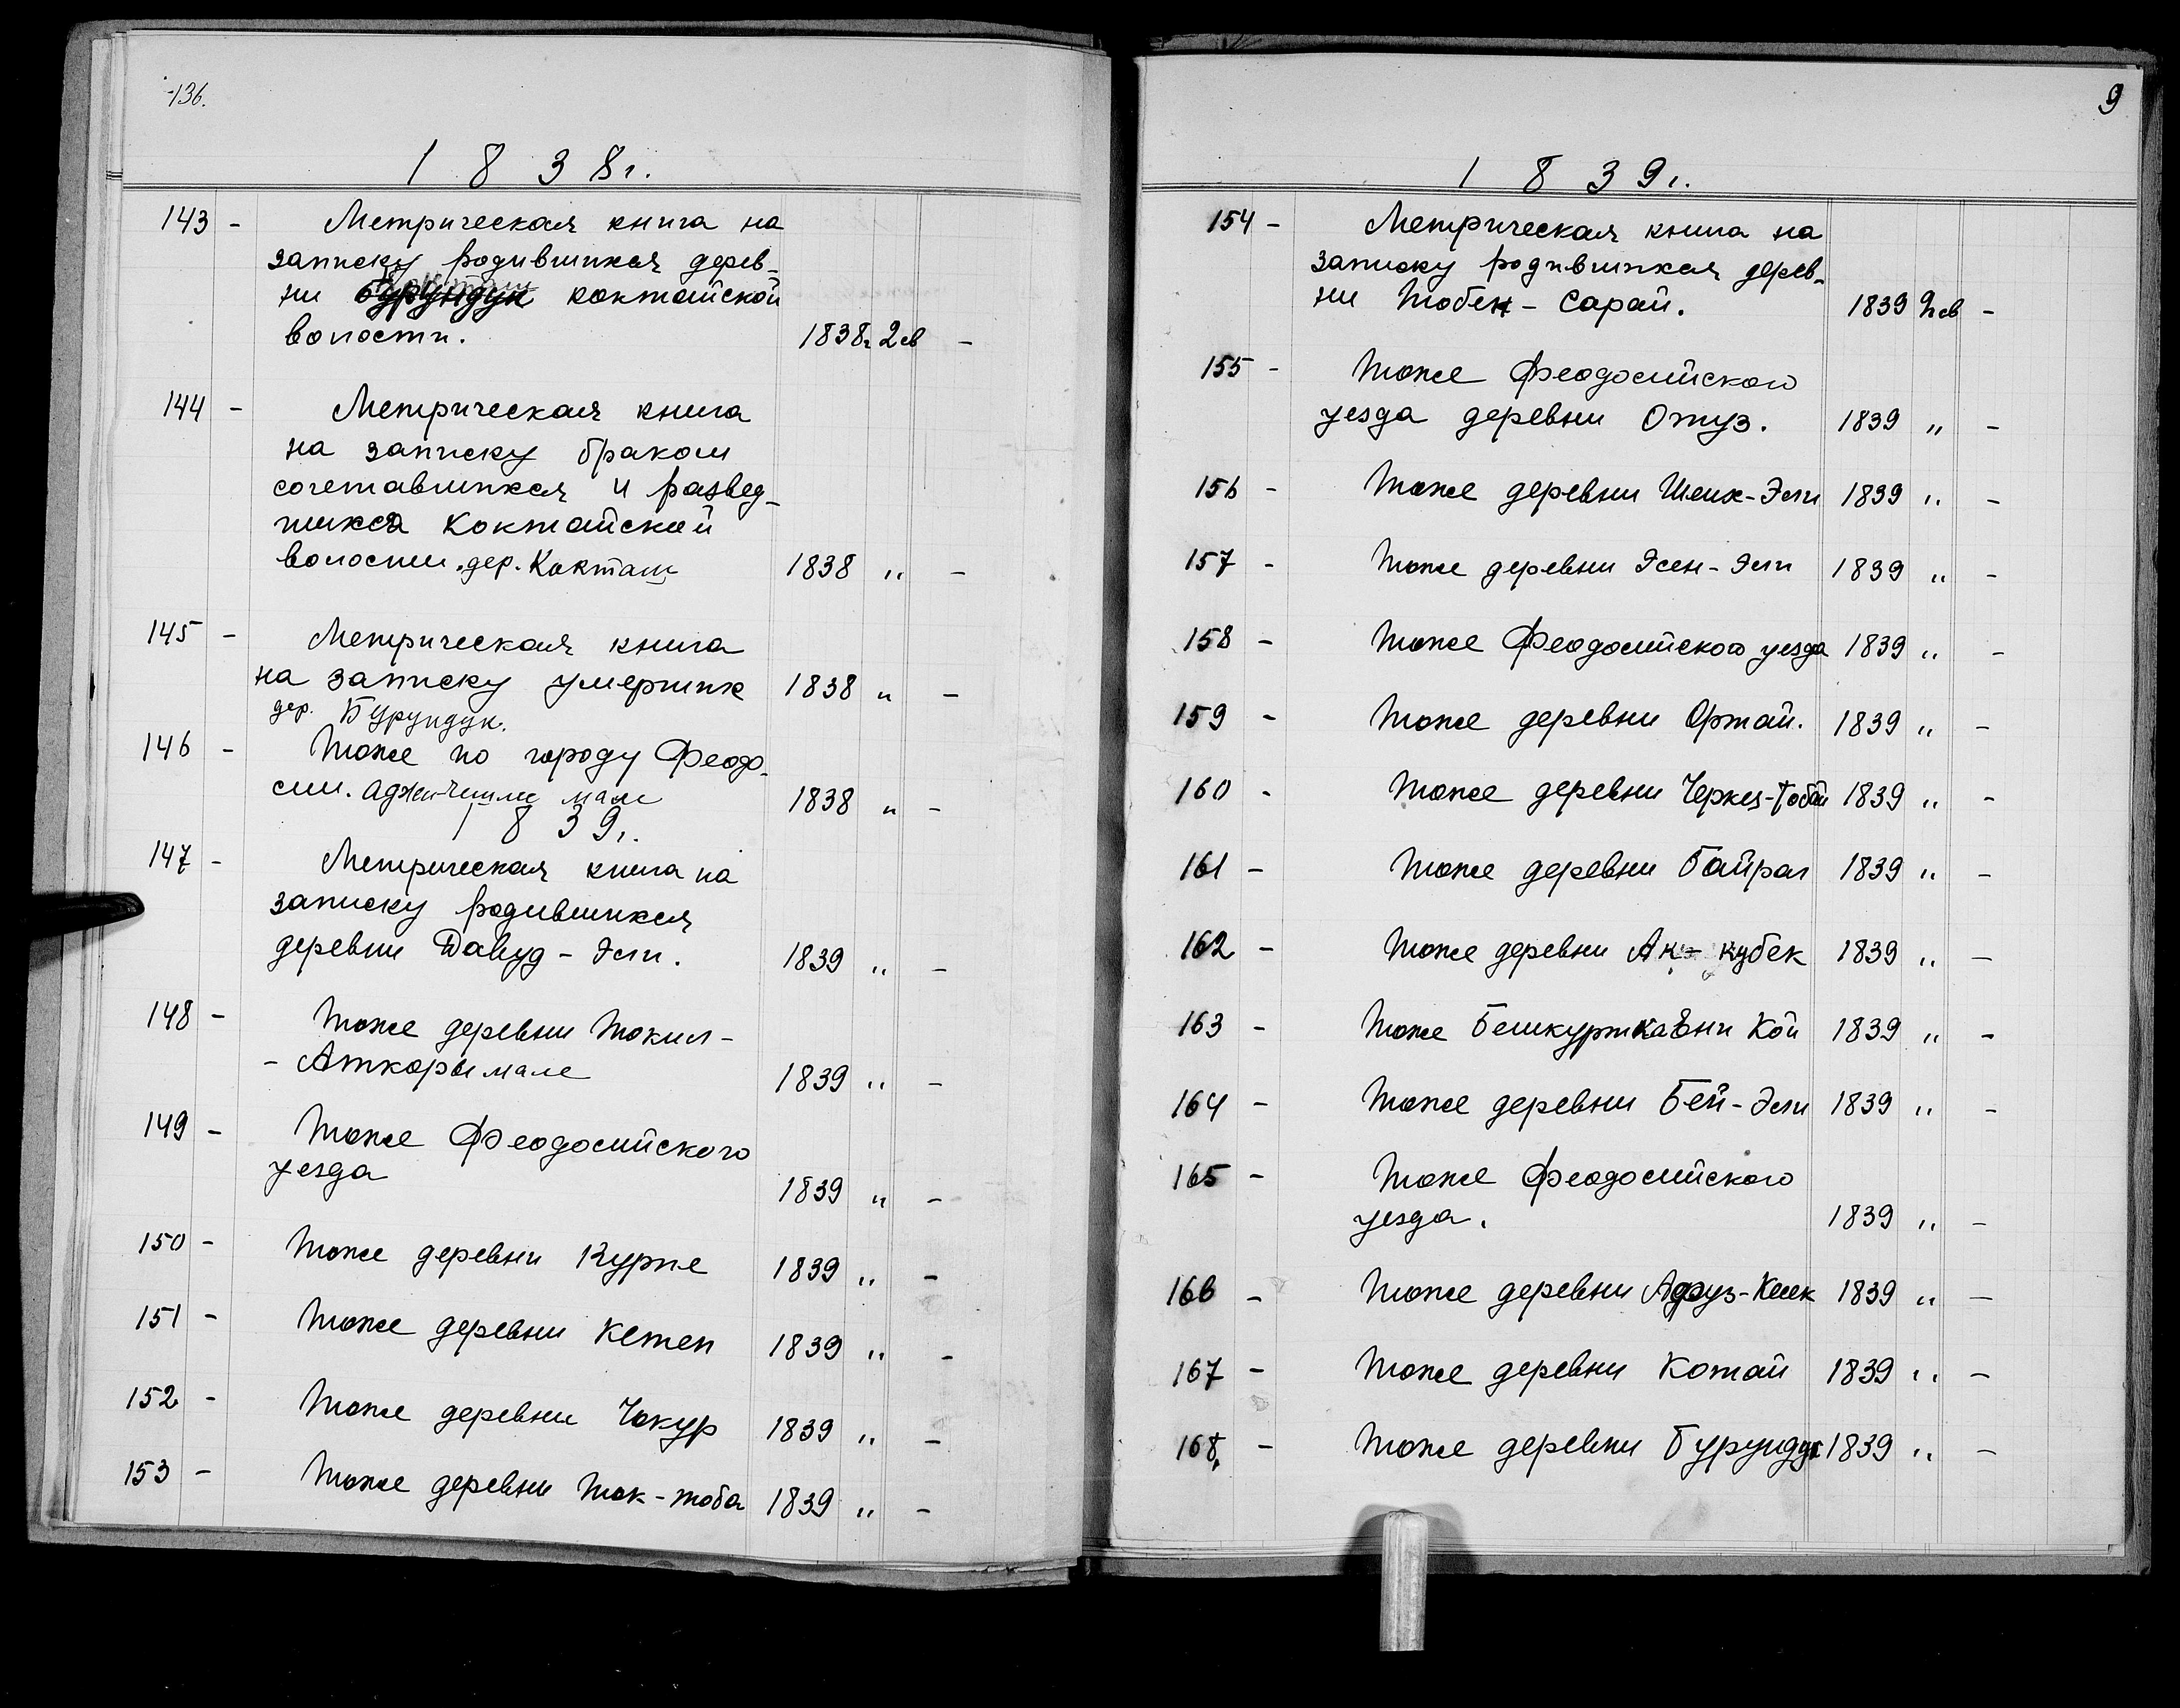 136.
1838г.
143 - Метрическая книга на
записку родившихся дерев-
ни Кокташ коктайской
волости. 1838г. 2 св -
144 - Метрическая книга
на записку браком
сочетавшихся и развед-
шихся Коктайской
волости. дер. Кокташ 1838 " -
145 - Метрическая книга
на записку умерших 1838 " -
дер. Бурундук.
146 - Тоже по городу Феодо-
сии. Аджи-Чешме мале 1838 " -
1839г.
147 - Метрическая книга на
записку родившихся
деревни Давуд-Эли. 1839 " -
148 - Тоже деревни Токил-
- Аткоры мале 1839 " -
149 - Тоже Феодосийского
уезда 1839 " -
150 - Тоже деревни Курпе 1839 " -
151 - Тоже деревни Кетен 1839 " -
152 - Тоже деревни Чокур 1839 " -
153 - Тоже деревни Ток-тоба 1839 " -
9
1839г.
154 - Метрическая книга на
записку родившихся дерев-
ни Тобен-Сарай. 1839 2 св -
155 - Тоже Феодосийского
уезда деревни Отуз. 1839 " -
156 - Тоже деревни Шеих-Эли 1839 " -
157 - Тоже деревни Эсен-Эли 1839 " -
158 - Тоже Феодосийского уезда 1839 " -
159 - Тоже деревни Ортай. 1839 " -
160 - Тоже деревни Черкез-Тобай 1839 " -
161 - Тоже деревни Байрач 1839 " -
162 - Тоже деревни Ак-кубек 1839 " -
163 - Тоже Бешкурткаени Кой 1839 " -
164 - Тоже деревни Бей-Эли 1839 " -
165 - Тоже Феодосийского
уезда. 1839 " -
166 - Тоже деревни -Кеек 1839 " -
167 - Тоже деревни Котай 1839 " -
168 - Тоже деревни Бурундук 1839 " -